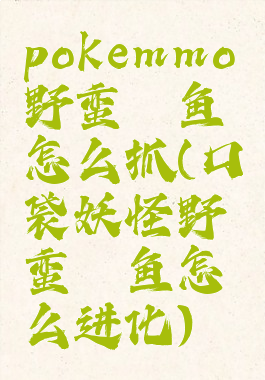 pokemmo
野蛮 鱼
怎么抓(口
袋妖怪野
蛮 鱼怎
么进化)